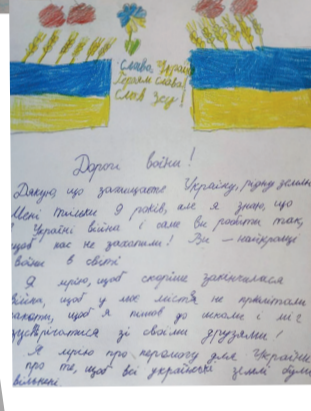 Слава Україні
Героям слава!
Слава ЗСУ!
Дорогі воїни!
Дякую, що захищаєте Україну, рідну землю
Мені тільки 9 років, але я знаю, що
в Україні війна і саме ви робите так,
щоб нас не захопили! Ви – найкращі
воїни в світі
Я мрію, щоб скоріше закінчилася
війна, щоб у моє місто не прилітали
ракети, щоб я пішов до школи і міг
зустрічатися зі своїми друзями!
Я мрію про перемогу для України
про те, щоб всі українські землі були
вільними